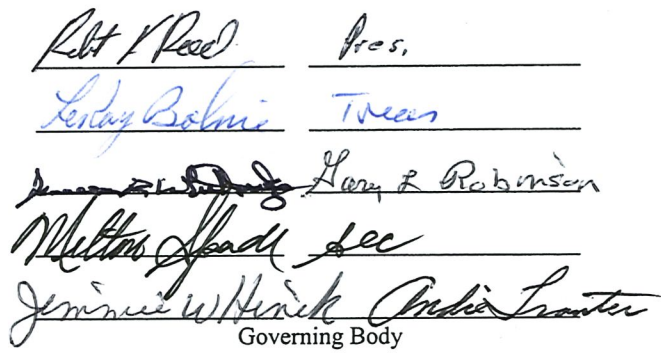 Robt K Reed Pres.
LeRoy Treas
Gary L Robinson
Milton Spade Sec
Jimmie W Hinek Andie Tranter
Governing Body